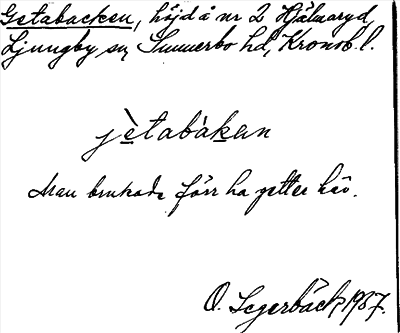 Getabacken, höjd å nr 2 Hjälmaryd,
Ljungby sn, Sunnerbo hd, Kronob. l.
jètabàkan
Man brukade förr ha getter här.
O. Segerbäck, 1937.